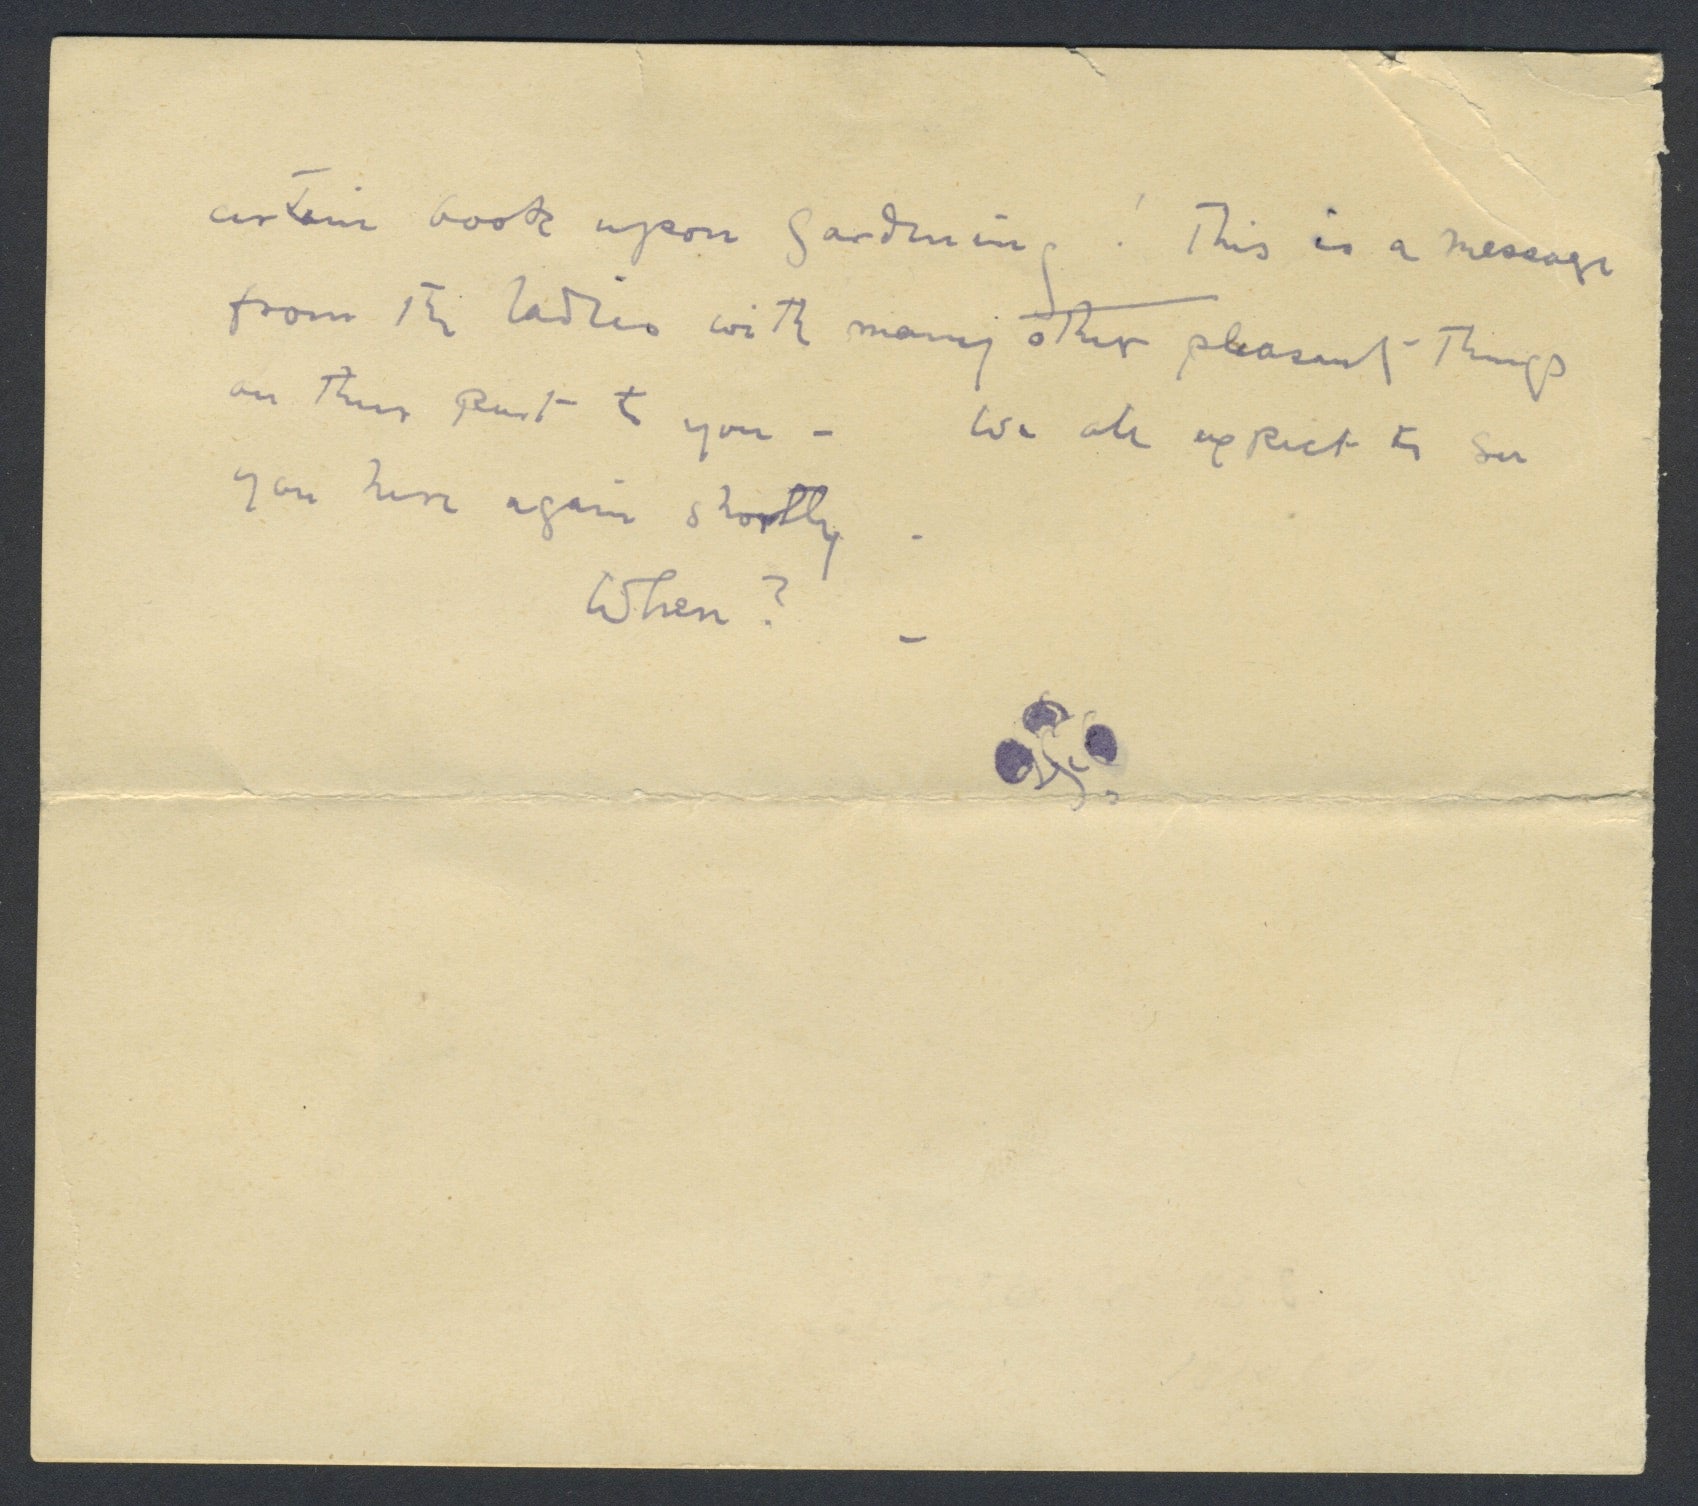 certain book upon gardening! This is a message
from the ladies with many other pleasant things
on their part to you – We all expect to see
you here again shortly.
When? –